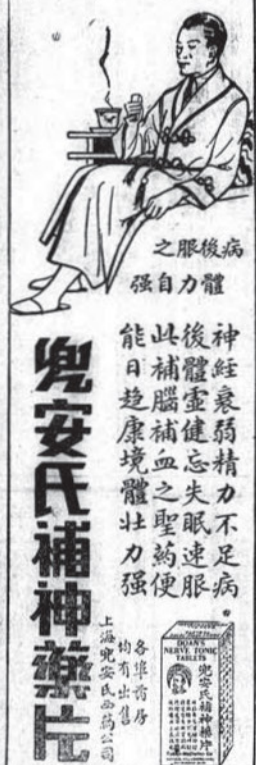 病後服之
體力自强
神經衰弱精力不足病
後體虛健忘失眠速服
此補腦補血之聖葯便
能日趋康境體壯力强
兜安氏補神藥片
各埠葯房
均有出售
上海兜安氏西药公司
DOAN'S
NERVE TONIC
TABLETS
兜安氏補神藥片